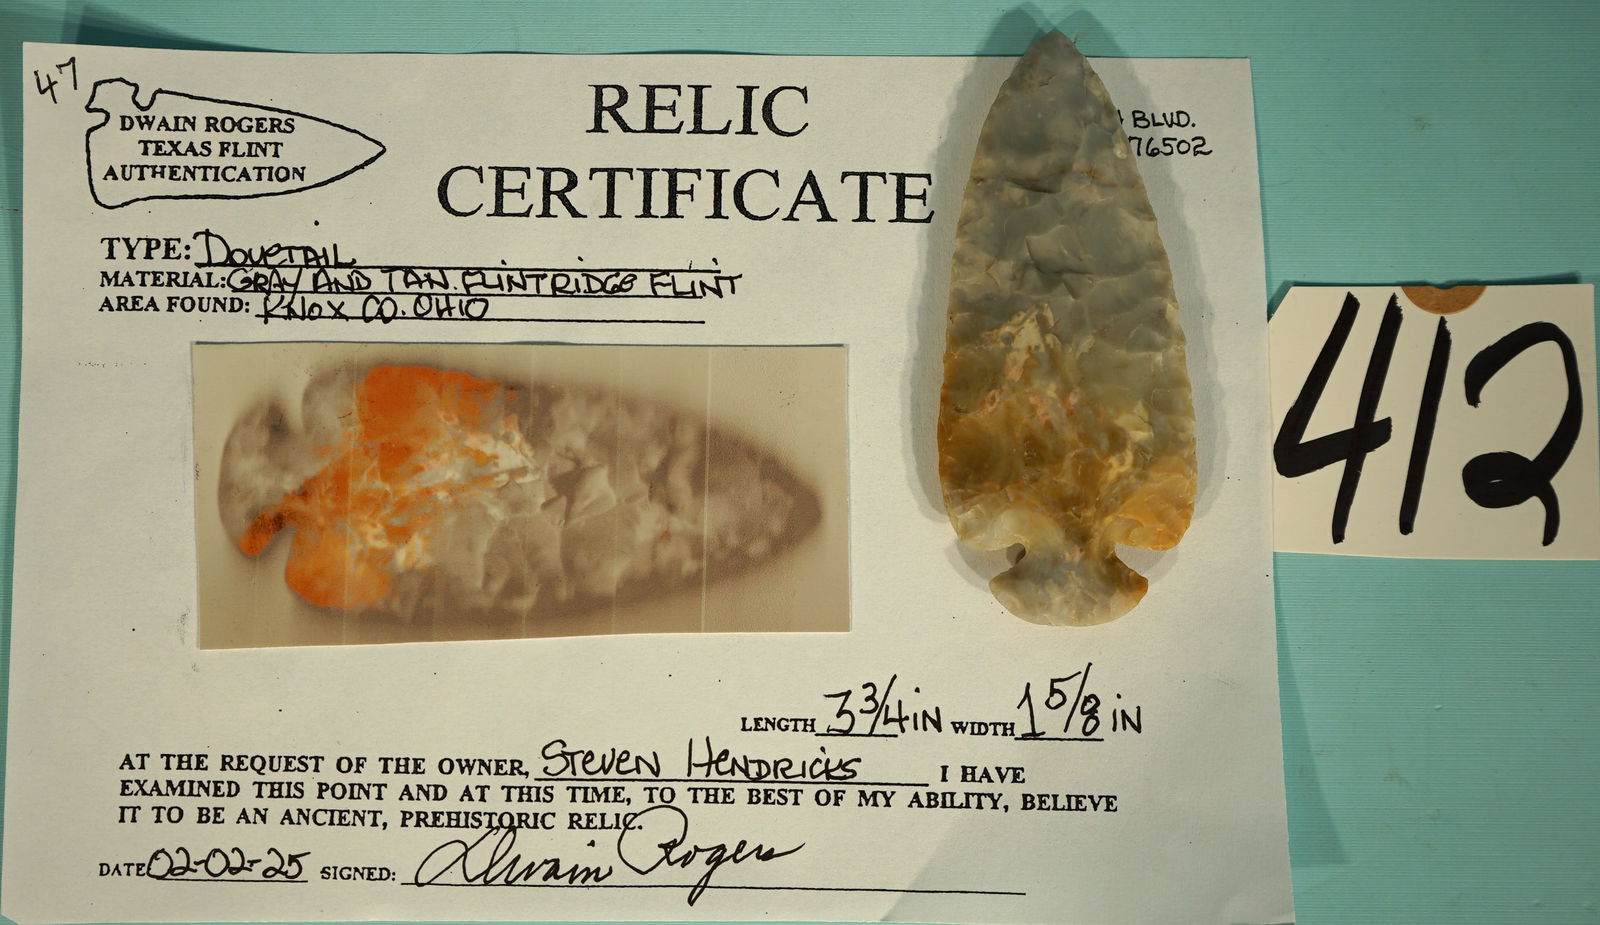 47
DWAIN ROGERS
TEXAS FLINT
AUTHENTICATION
RELIC
CERTIFICATE
BLVD.
76502
TYPE: DOVETAIL
MATERIAL: GRAY AND TAN. FLINTRIDGE FLINT
AREA FOUND: KNOX CO. OHIO
412
LENGTH 3 3/4 IN WIDTH 1 5/8 IN
AT THE REQUEST OF THE OWNER, STEVEN HENDRICKS I HAVE
EXAMINED THIS POINT AND AT THIS TIME, TO THE BEST OF MY ABILITY, BELIEVE
IT TO BE AN ANCIENT, PREHISTORIC RELIC.
DATE 02-02-25 SIGNED: Dwain Rogers